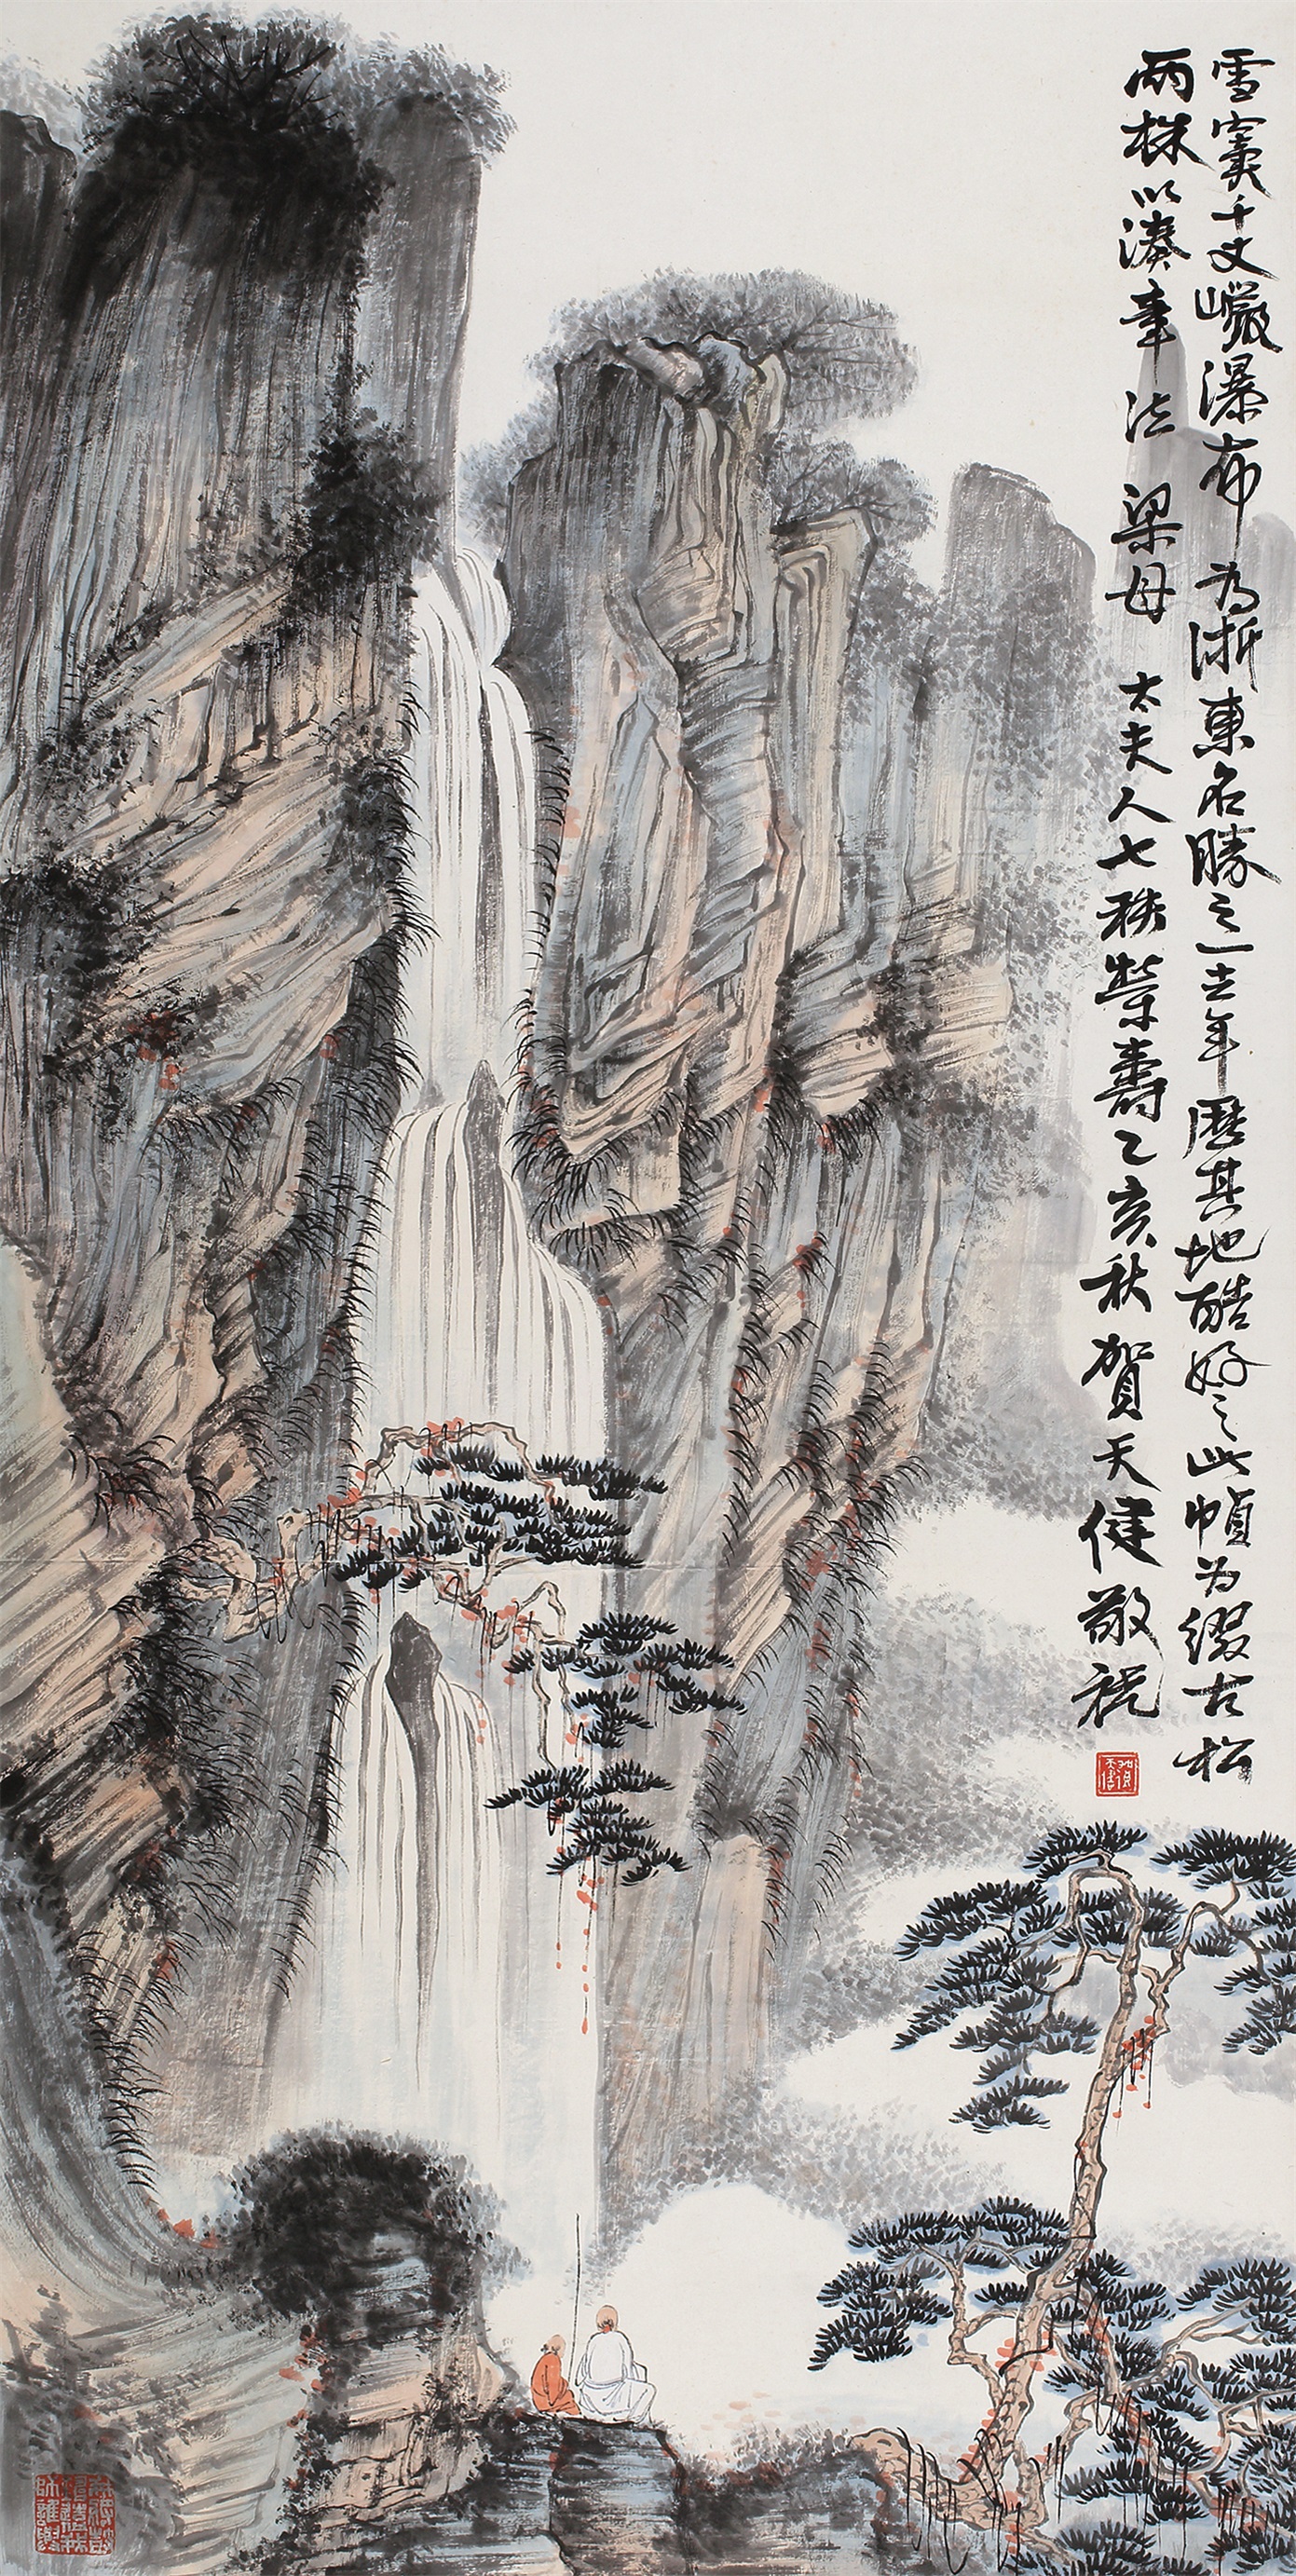 雪竇千丈巖瀑布为浙東名勝之一去年歷其地酷好之此幀为缀古松
兩株以湊章法 梁母 太夫人七秩榮壽乙亥秋賀天健敬祝